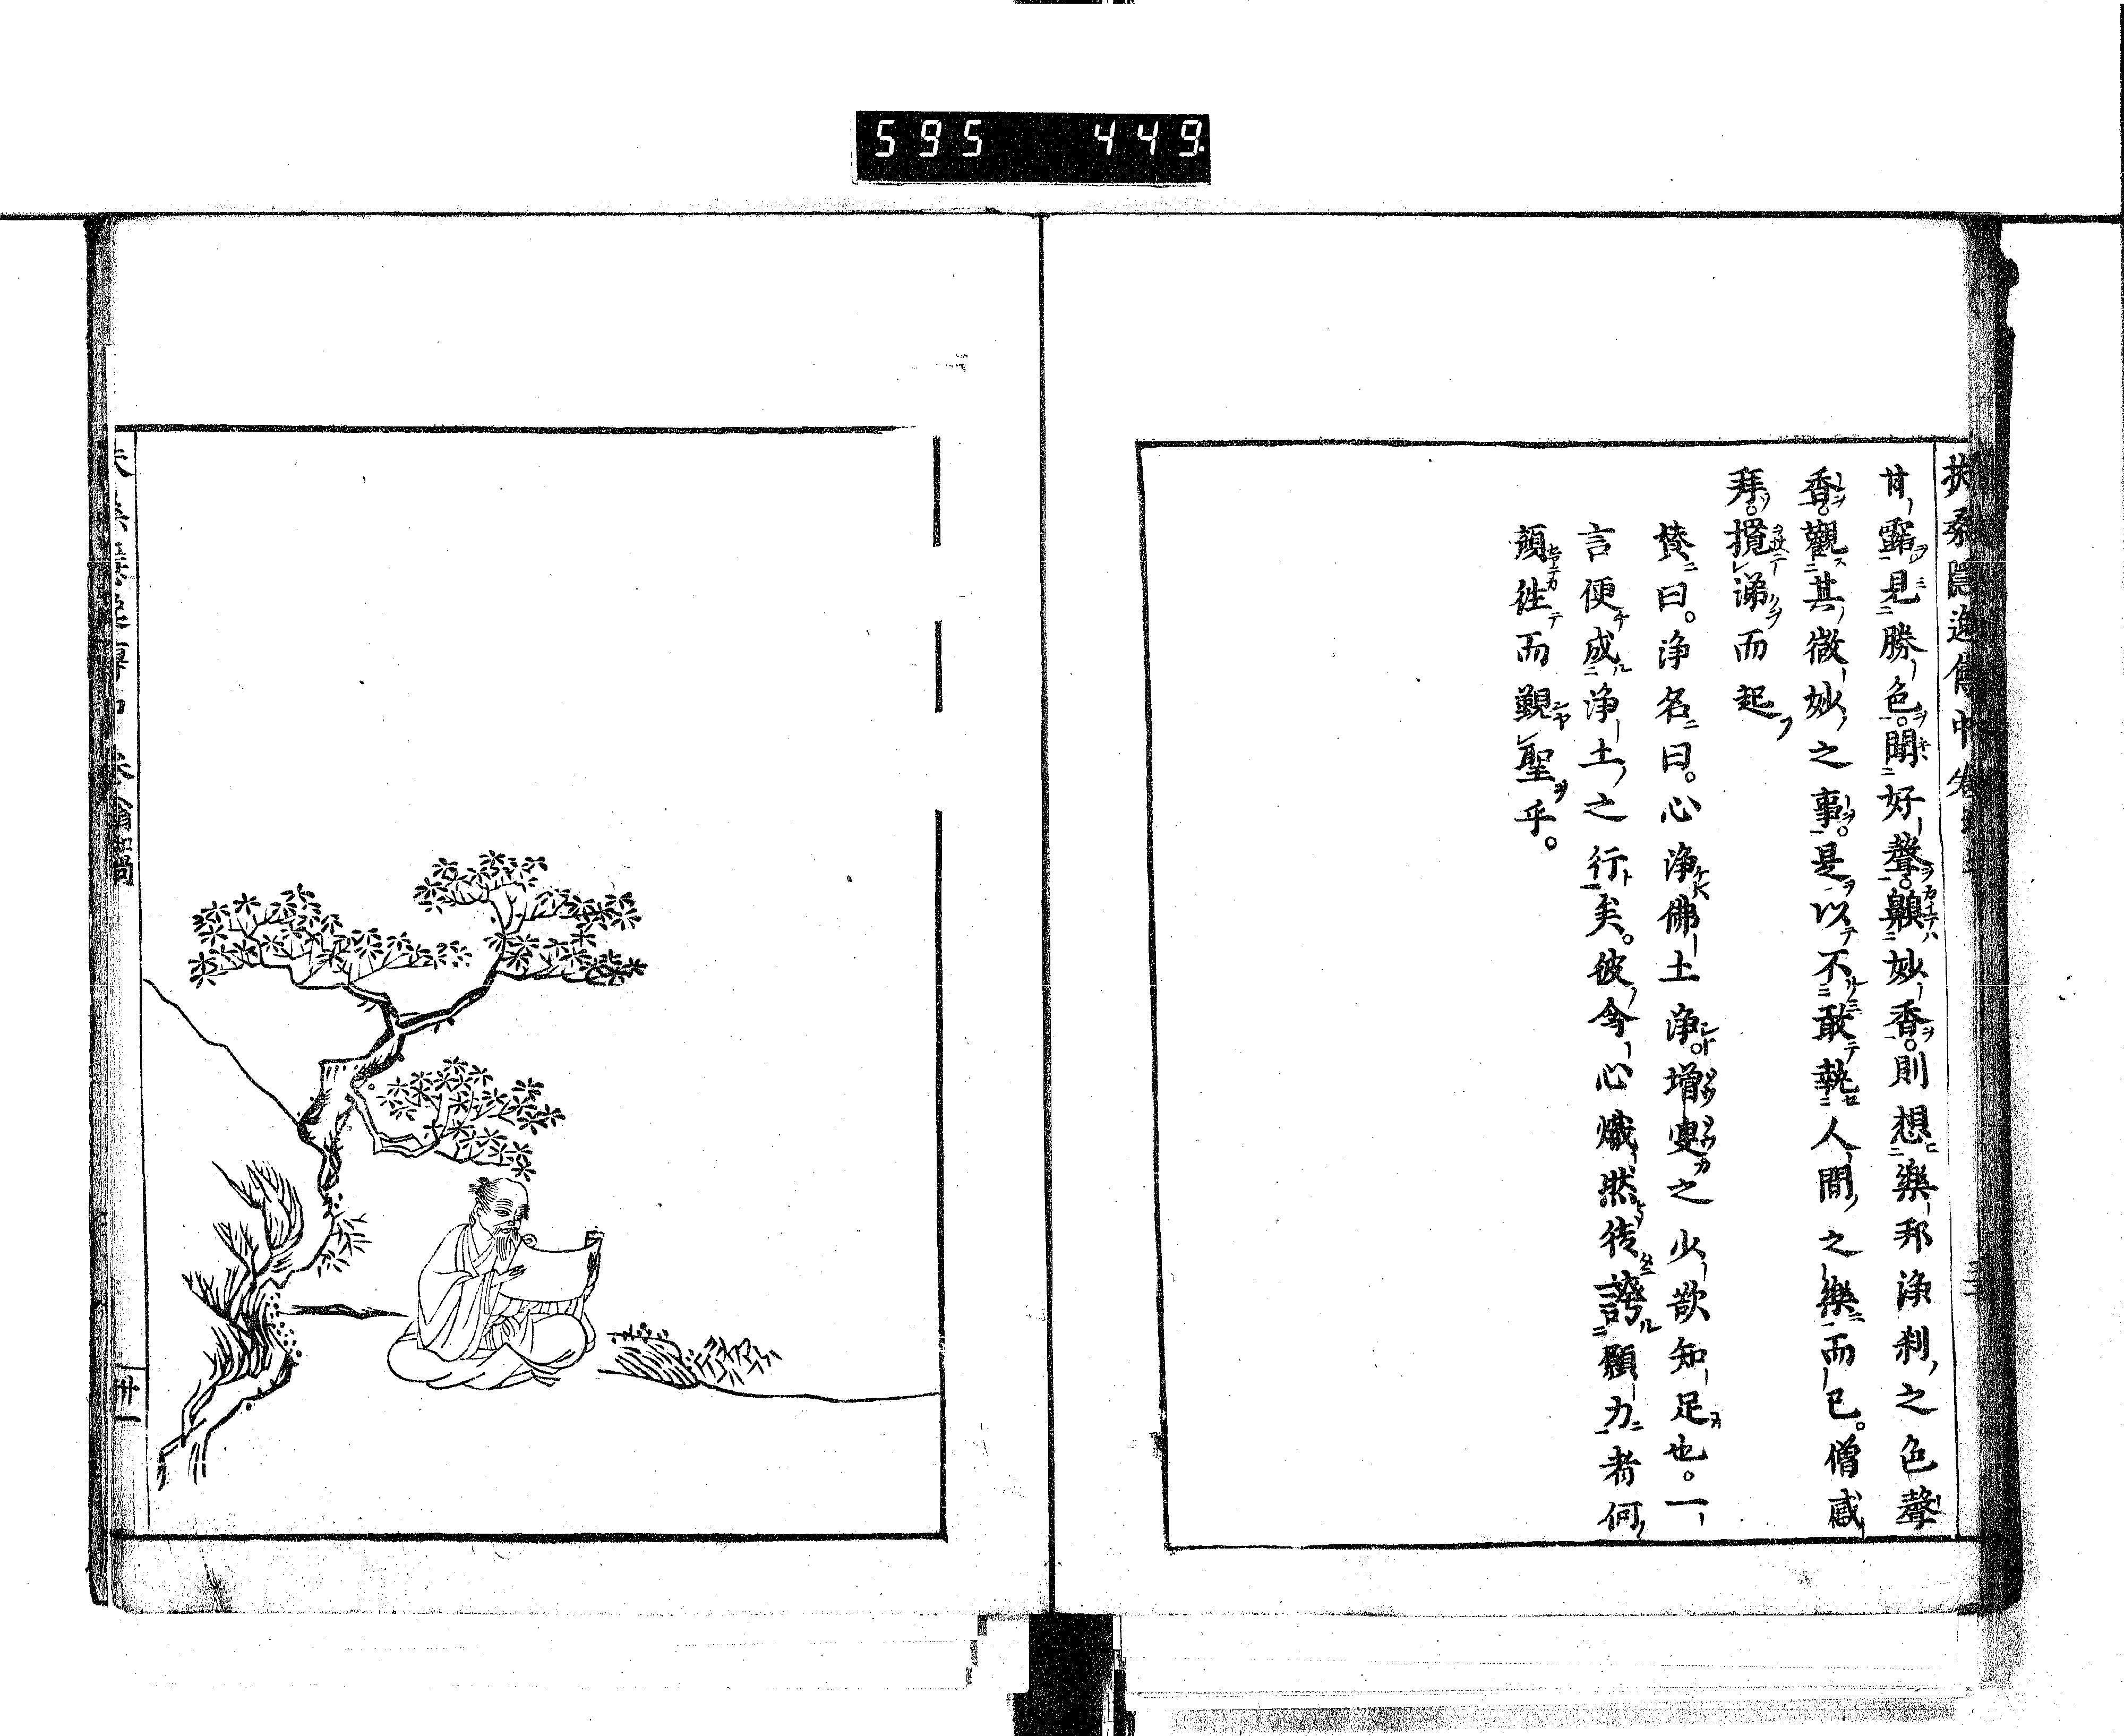 595 449
扶桑隱逸傳中卷
甘露見勝色。聞好聲。齅妙香。則想樂邦淨刹之色聲
香。觀其微妙之事。是以不敢執人間之樂而已。僧感
拜。攬涕而起
賛曰。淨名曰。心淨佛土淨。増叟之少欲知足也。一
言便成淨土之行矣。彼今心熾然徒謗願力者何
顔徃而覲聖乎。
廿一